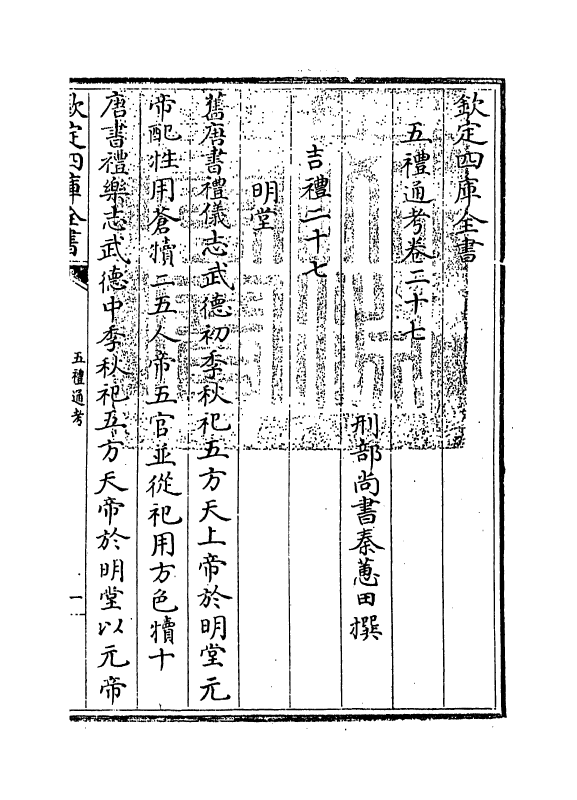 欽定四庫全書
五禮通考卷二十七
刑部尚書秦蕙田撰
吉禮二十七
明堂
舊唐書禮儀志武德初季秋祀五方天上帝於明堂元
帝配牲用蒼犢二五人帝五官並從祀用方色犢十
唐書禮樂志武德中季秋祀五方天帝於明堂以元帝
欽定四庫全書
五禮通考
一